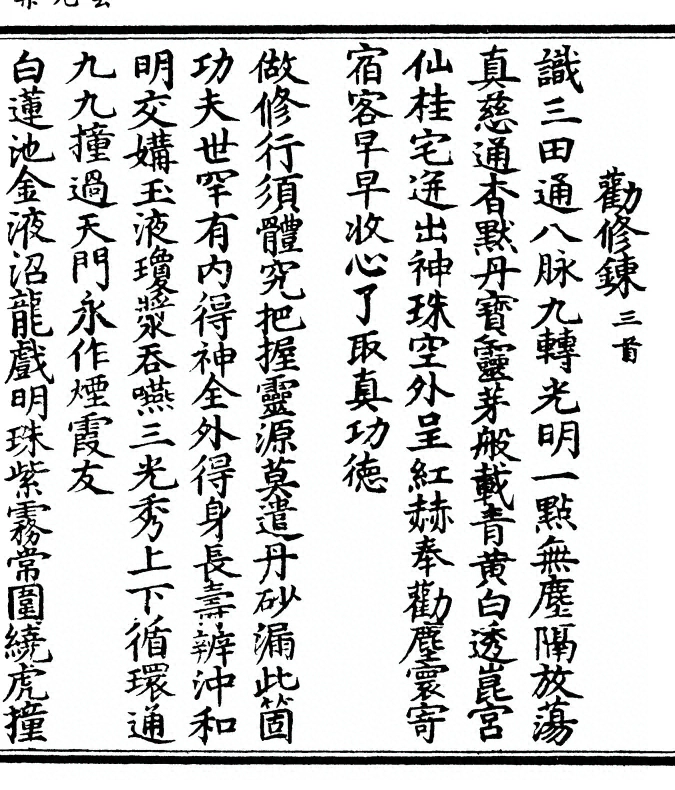 勸修鍊三首
識三田通八脉九轉光明一點無塵隔放蕩
真慈通杳默丹寶靈芽般載青黃白透崑宮
仙桂宅迸出神珠空外呈紅赫奉勸塵寰寄
宿客早早收心了取真功德
做修行須體究把握靈源莫遣丹砂漏此箇
功夫世罕有内得神全外得身長壽辦沖和
明交媾玉液瓊漿吞嚥三光秀上下循環通
九九撞過天門永作煙霞友
白蓮池金液沼龍戲明珠紫霧常圍繞虎撞